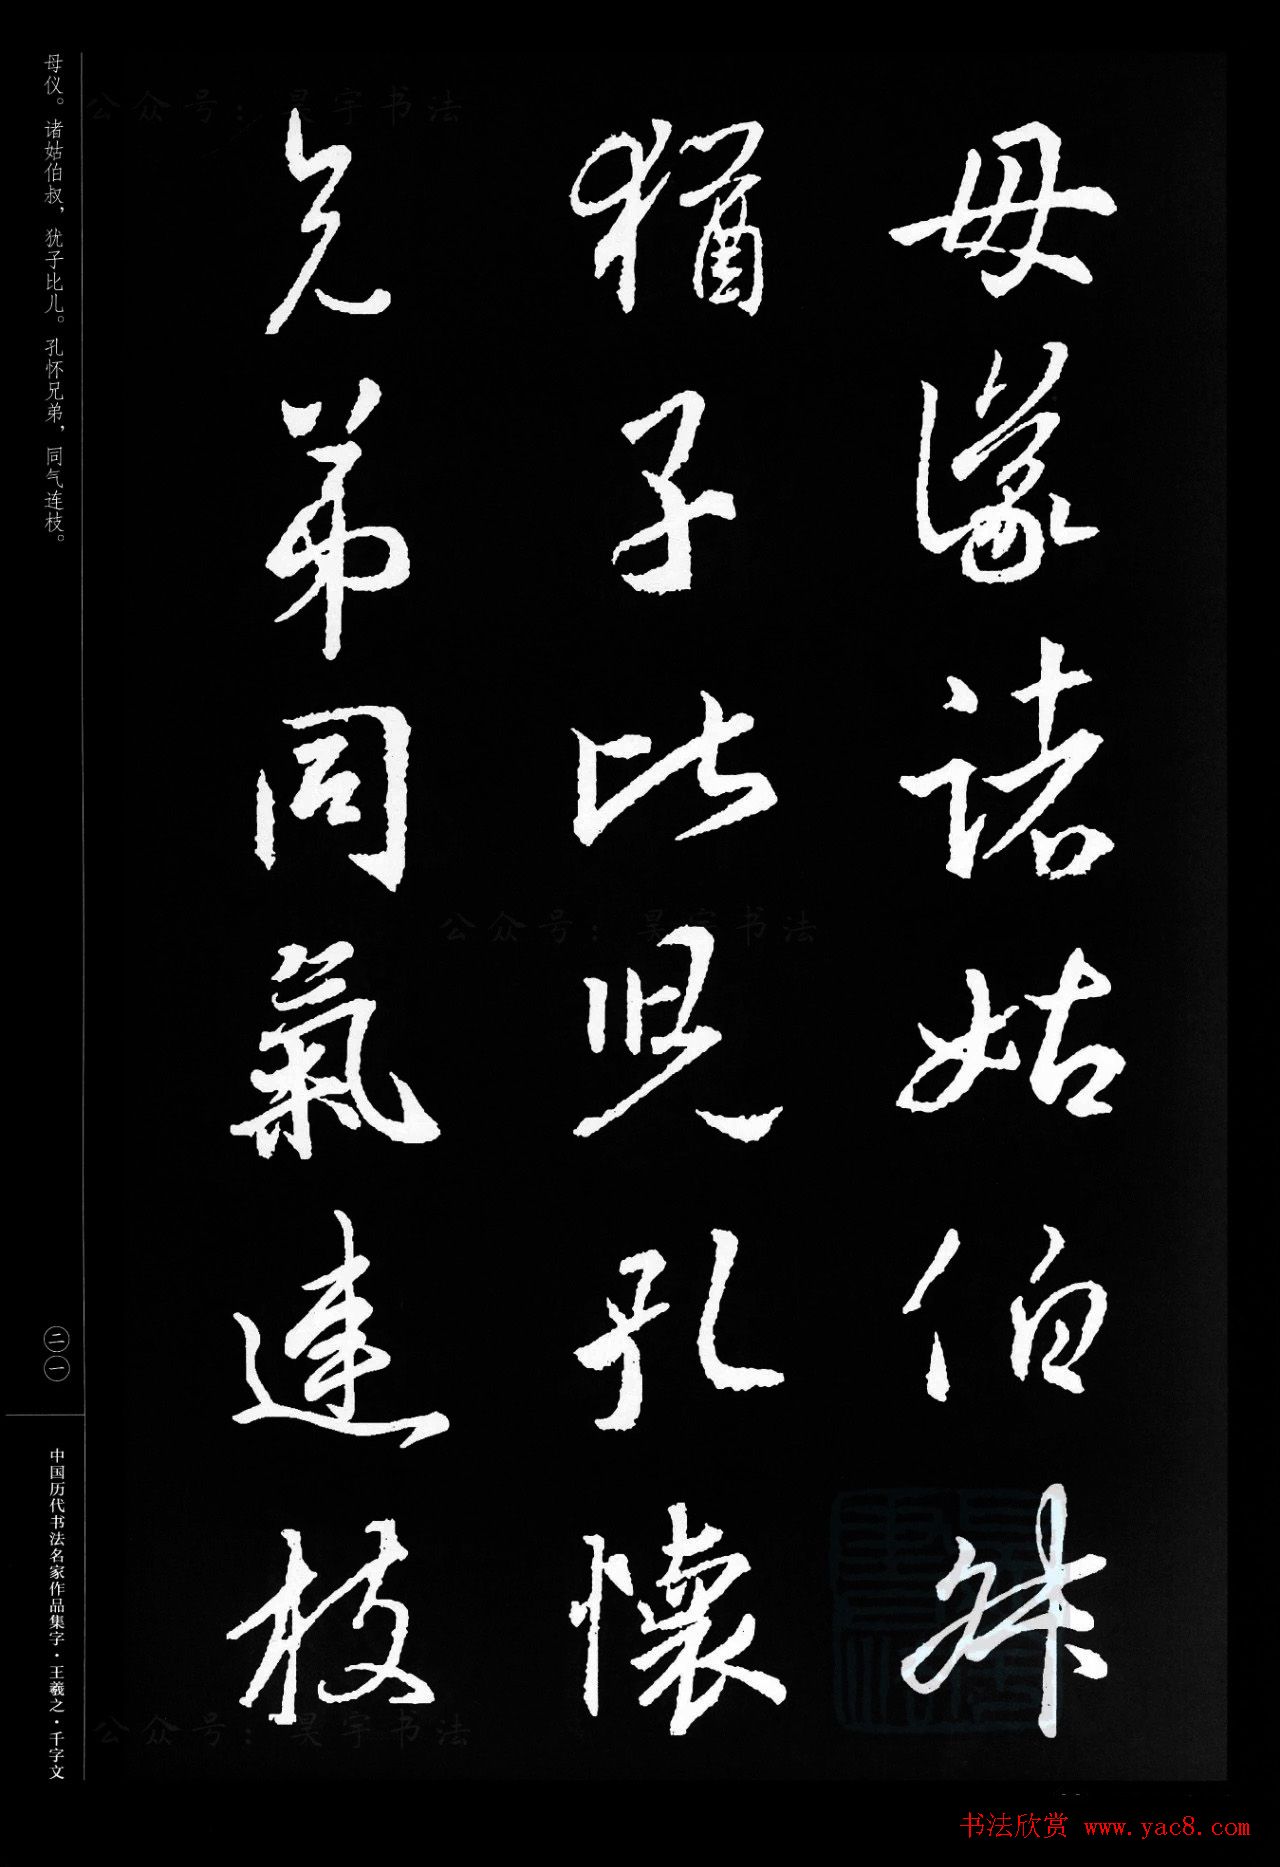 母儀諸姑伯叔
猶子比兒孔懷
兄弟同氣連枝
母仪。诸姑伯叔，犹子比儿。孔怀兄弟，同气连枝。
二一
中国历代书法名家作品集字·王羲之·千字文
公众号：昊宇书法
公众号：昊宇书法
公众号：昊宇书法
书法欣赏 www.yac8.com